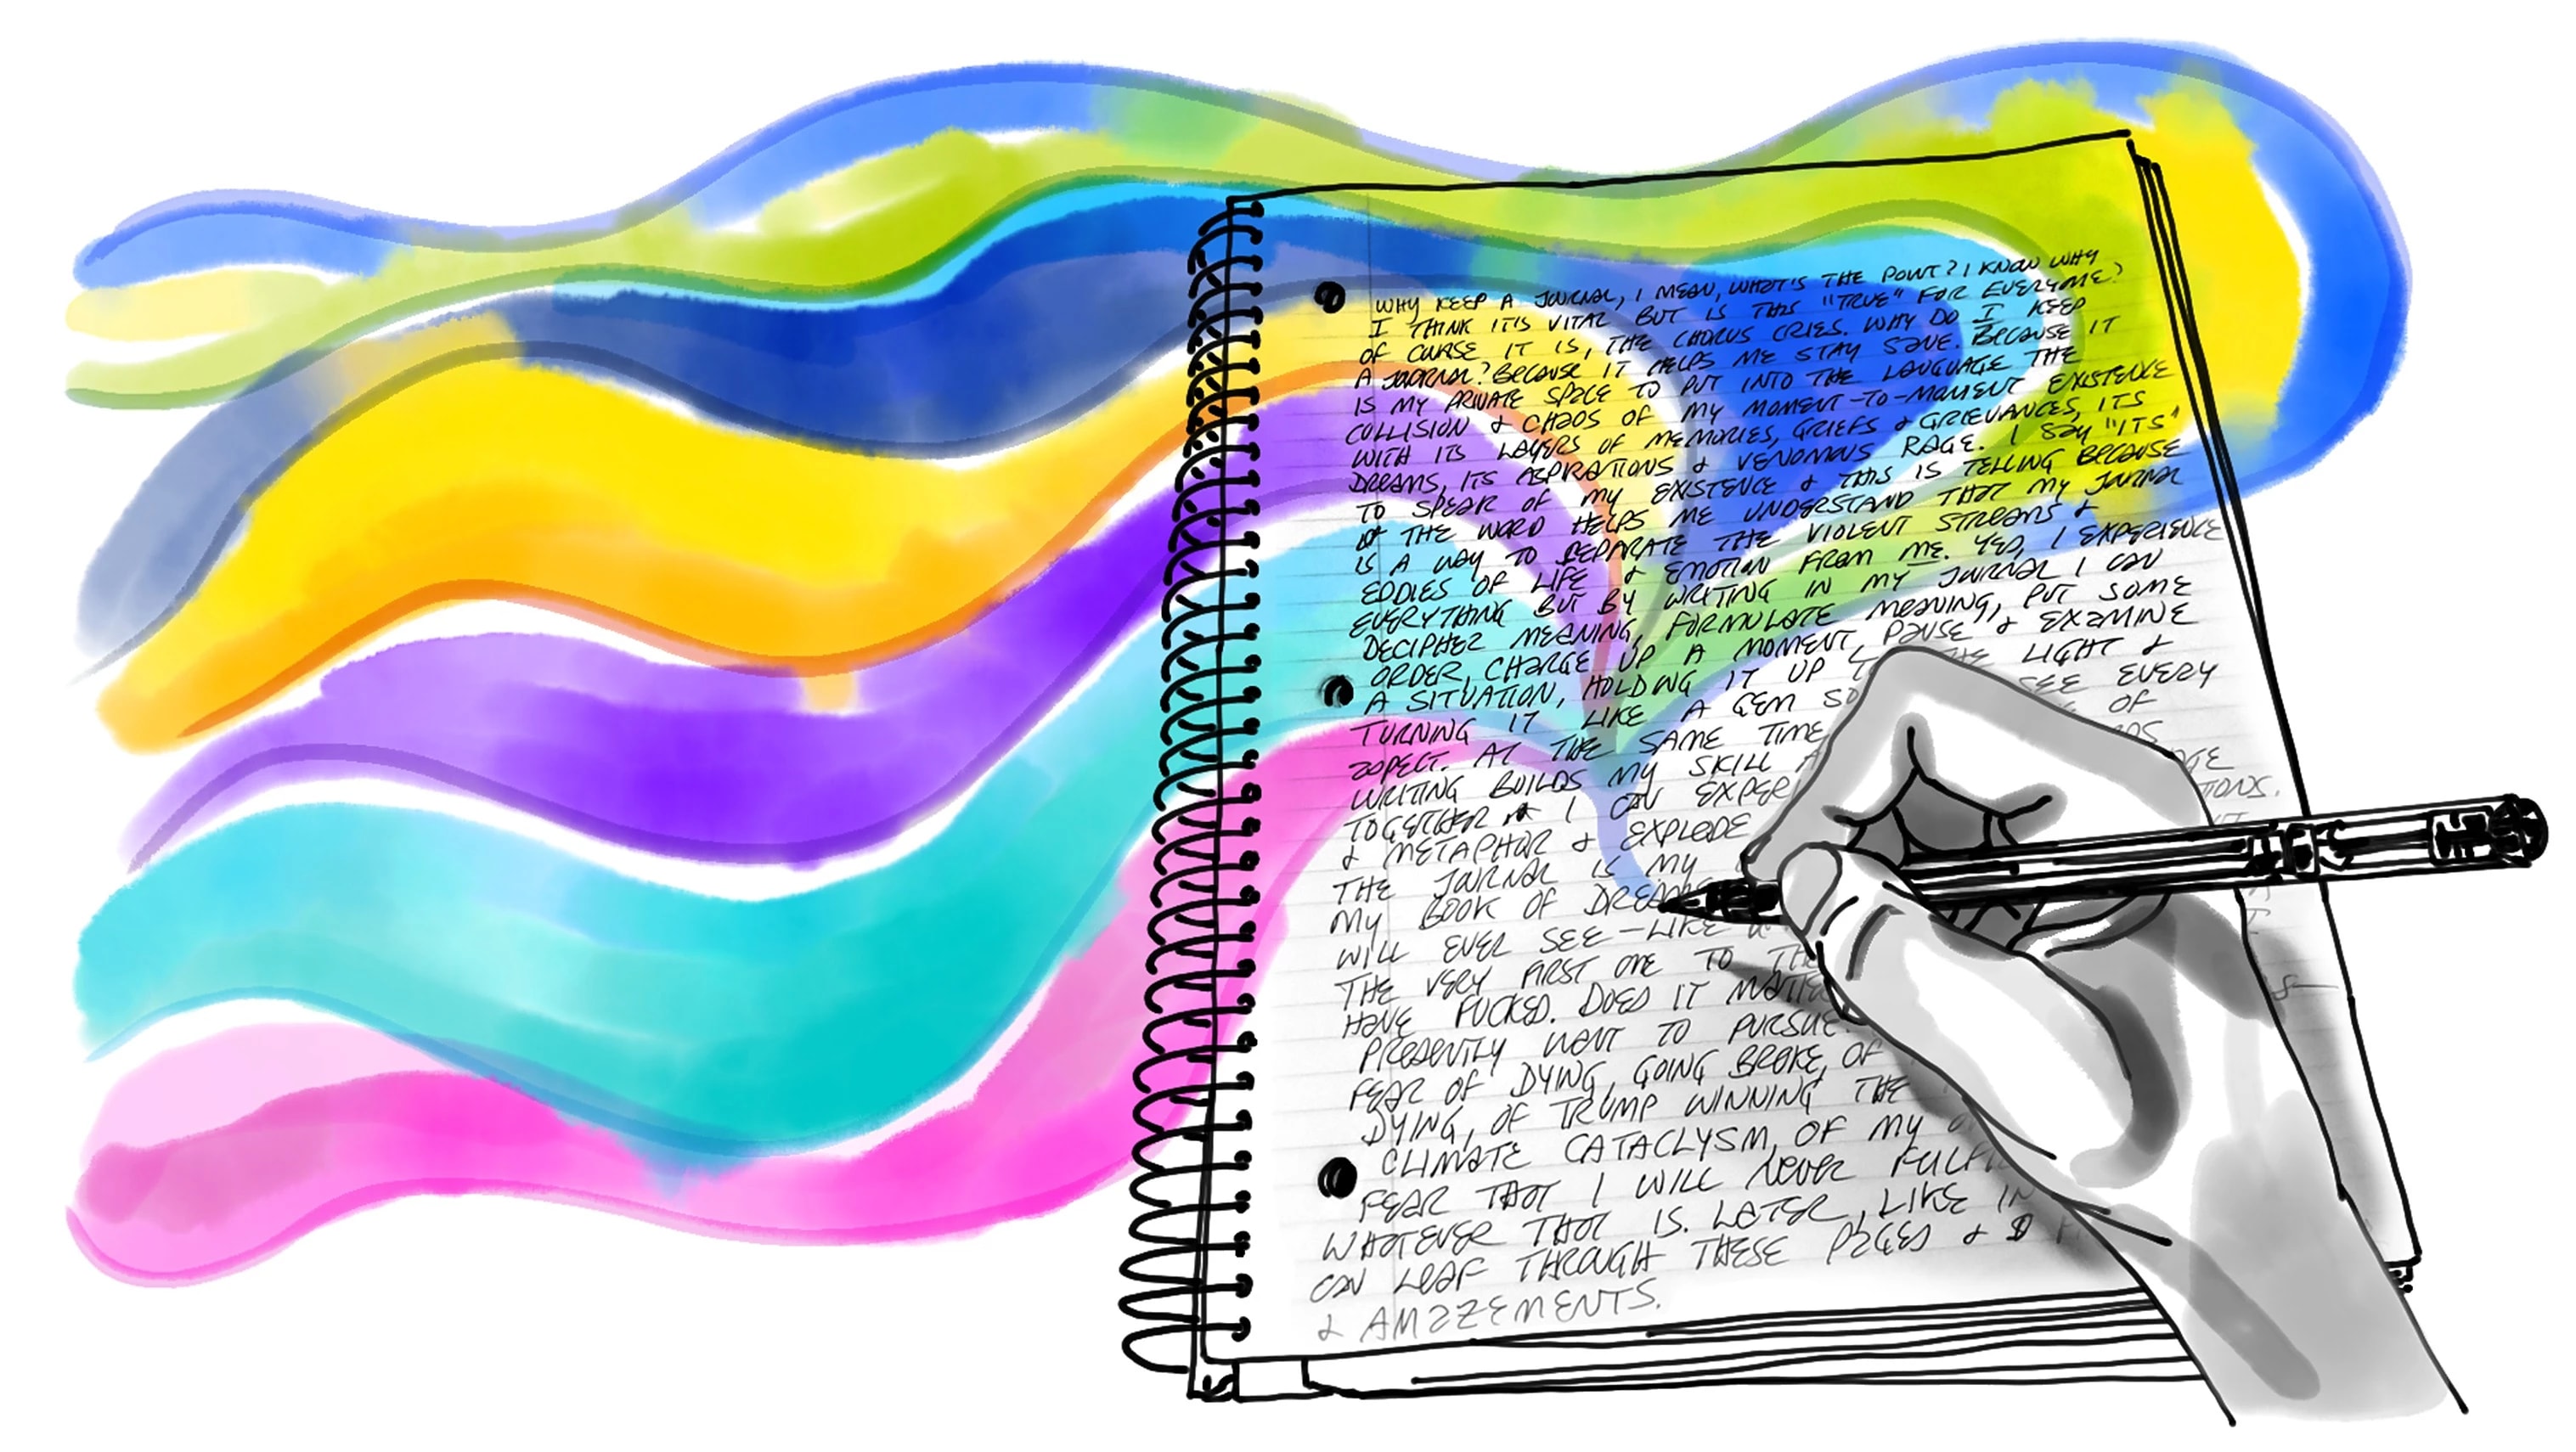 WHY KEEP A JOURNAL, I MEAN, WHAT'S THE POINT? I KNOW WHY
I THINK IT'S VITAL BUT IS THIS "TRUE" FOR EVERYONE?
OF COURSE IT IS, THE CHORUS CRIES. WHY DO I KEEP
A JOURNAL? BECAUSE IT HELPS ME STAY SANE. BECAUSE IT
IS MY PRIVATE SPACE TO PUT INTO THE LANGUAGE THE
COLLISION & CHAOS OF MY MOMENT-TO-MOMENT EXISTENCE
WITH ITS LAYERS OF MEMORIES, GRIEFS & GRIEVANCES, ITS
DREAMS, ITS ASPIRATIONS & VENOMOUS RAGE. I SAY "ITS"
TO SPEAK OF MY EXISTENCE & THIS IS TELLING BECAUSE
OF THE WORD HELPS ME UNDERSTAND THAT MY JOURNAL
IS A WAY TO SEPARATE THE VIOLENT STREAMS &
EDDIES OF LIFE & EMOTION FROM ME. YES, I EXPERIENCE
EVERYTHING BUT BY WRITING IN MY JOURNAL I CAN
DECIPHER MEANING, FORMULATE MEANING, PUT SOME
ORDER, CHARGE UP A MOMENT, PAUSE & EXAMINE
A SITUATION, HOLDING IT UP LIGHT &
TURNING IT LIKE A GEM SEE EVERY
ASPECT. AT THE SAME TIME OF
WRITING BUILDS MY SKILL
TOGETHER I CAN
& METAPHOR & EXPLODE
THE JOURNAL IS MY
MY BOOK OF
WILL EVER SEE—LIKE
THE VERY FIRST ONE TO
HAVE FUCKED. DOES IT
PRESENTLY WANT TO PURSUE
FEAR OF DYING, GOING BROKE, OF
DYING, OF TRUMP WINNING THE
CLIMATE CATACLYSM, OF MY
FEAR THAT I WILL NEVER
WHATEVER THAT IS. LATER, LIKE IN
CAN LEAF THROUGH THESE PAGES &
& AMAZEMENTS.